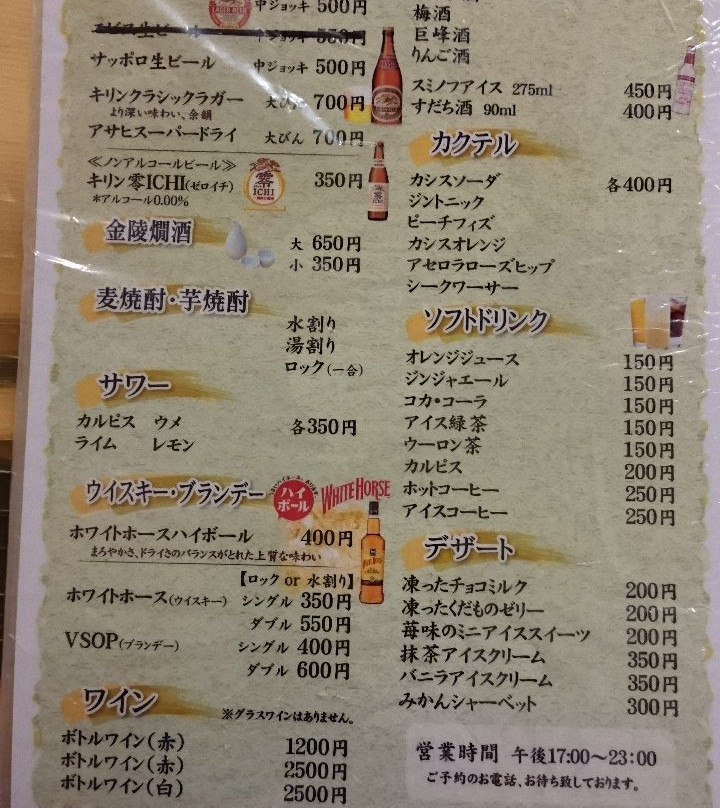 LAGER BEER
中ジョッキ 500円
エビス生ビール 中ジョッキ 550円
サッポロ生ビール 中ジョッキ 500円
キリンクラシックラガー 大びん 700円
より深い味わい、余韻
アサヒスーパードライ 大びん 700円
≪ノンアルコールビール≫
キリン零ICHI(ゼロイチ) 350円
*アルコール0.00%
零
ICHI
金陵燗酒
大 650円
小 350円
麦焼酎・芋焼酎
水割り
湯割り
ロック(一合)
サワー
カルピス ウメ 各350円
ライム レモン
ウイスキー・ブランデー
ハイボール
WHITE HORSE
ホワイトホースハイボール 400円
まろやかさ、ドライさのバランスがとれた上質な味わい
【ロック or 水割り】
ホワイトホース(ウイスキー) シングル 350円
ダブル 550円
VSOP(ブランデー) シングル 400円
ダブル 600円
ワイン
※グラスワインはありません。
ボトルワイン(赤) 1200円
ボトルワイン(赤) 2500円
ボトルワイン(白) 2500円
梅酒
巨峰酒
りんご酒
スミノフアイス 275ml 450円
すだち酒 90ml 400円
カクテル
カシスソーダ 各400円
ジントニック
ピーチフィズ
カシスオレンジ
アセロラローズヒップ
シークワーサー
ソフトドリンク
オレンジジュース 150円
ジンジャエール 150円
コカ・コーラ 150円
アイス緑茶 150円
ウーロン茶 150円
カルピス 200円
ホットコーヒー 250円
アイスコーヒー 250円
デザート
凍ったチョコミルク 200円
凍ったくだものゼリー 200円
苺味のミニアイススイーツ 200円
抹茶アイスクリーム 350円
バニラアイスクリーム 350円
みかんシャーベット 300円
営業時間 午後17:00〜23:00
ご予約のお電話、お待ち致しております。